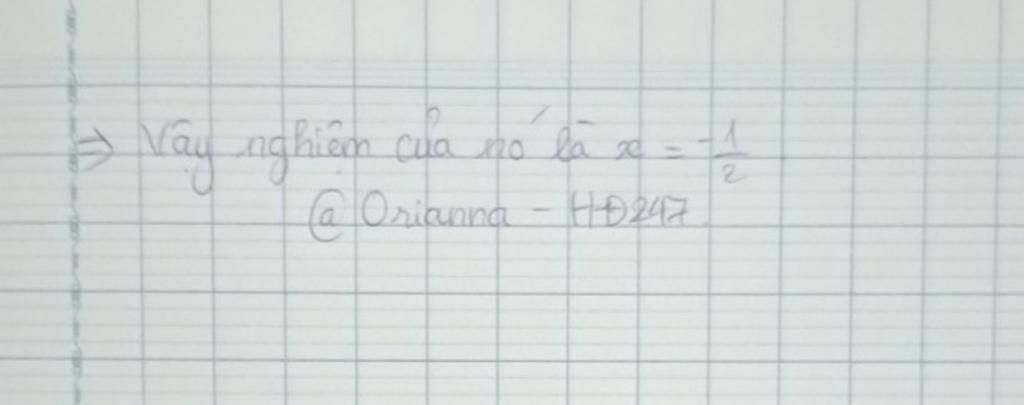 ⇒ Vậy nghiệm của nó là x = -1/2
@ Orianna - HĐ247